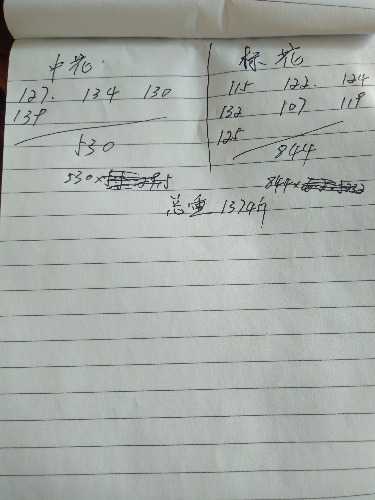 中花
127. 134 130
139
530
530×
标花
115 122. 124
132 107 119
125
844
844×
总重 1374斤